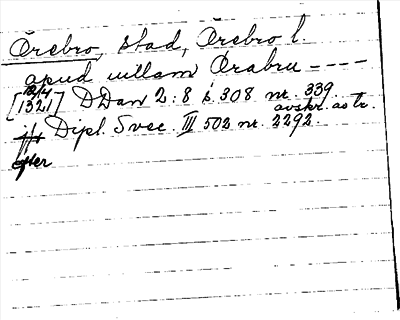 Örebro, stad, Örebro l.
apud uillam Ørabru ----
12/4
[1321] DDan 2:8 s. 308 nr. 339.
avskr. astr.
Dipl. Svec. III 502 nr. 2292.
efter